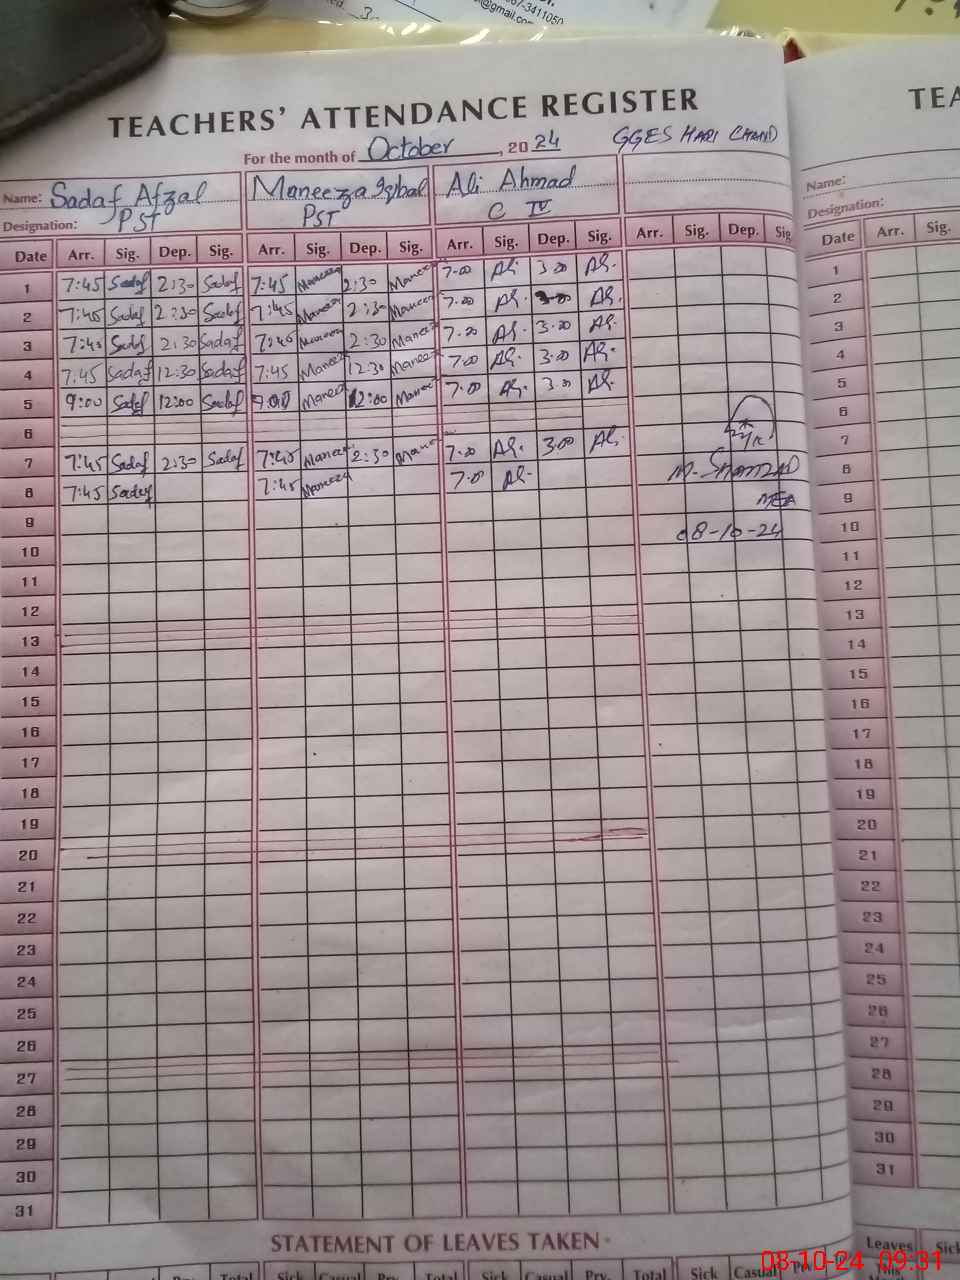 67-3411050
@gmail.com
TEACHERS' ATTENDANCE REGISTER
For the month of October, 2024
GGES HARI CHAND
Name: Sadaf Afzal Maneeza Iqbal Ali Ahmad
Designation: PST PST C IV
Date Arr. Sig. Dep. Sig. Arr. Sig. Dep. Sig. Arr. Sig. Dep. Sig. Arr. Sig. Dep. Sig
1 7:45 Sadaf 2:30 Sadaf 7:45 Maneeza 2:30 Maneeza 7.00 Ali 3.00 Ali
2 7:45 Sadaf 2:30 Sadaf 7:45 Maneeza 2:30 Maneeza 7.00 Ali 3.00 Ali
3 7:45 Sadaf 2:30 Sadaf 7:45 Maneeza 2:30 Maneeza 7.00 Ali 3.00 Ali
4 7:45 Sadaf 12:30 Sadaf 7:45 Maneeza 12:30 Maneeza 7.00 Ali 3.00 Ali
5 9:00 Sadaf 12:00 Sadaf 9:00 Maneeza 12:00 Maneeza 7.00 Ali 3.00 Ali
6
7 7:45 Sadaf 2:30 Sadaf 7:45 Maneeza 2:30 Maneeza 7.00 Ali 3.00 Ali
8 7:45 Sadaf 7:45 Maneeza 7.00 Ali M. Shamzad
9 MEA
10 08-10-24
11
12
13
14
15
16
17
18
19
20
21
22
23
24
25
26
27
28
29
30
31
STATEMENT OF LEAVES TAKEN
Total Sick Casual Prv. Total Sick Casual Prv. Total Sick Casual Prv.
TEA
Name:
Designation:
Date Arr. Sig.
1
2
3
4
5
6
7
8
9
10
11
12
13
14
15
16
17
18
19
20
21
22
23
24
25
26
27
28
29
30
31
Leaves Sick
08-10-24 09:31